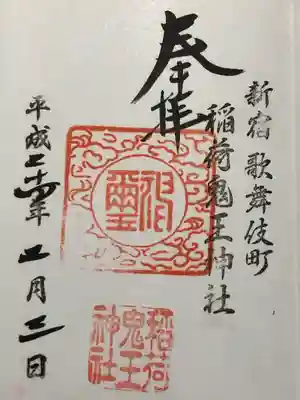 新宿 歌舞伎町
稲荷鬼王神社
奉拝
平成二十四年 五月三日
神璽
稲荷
鬼王
神社